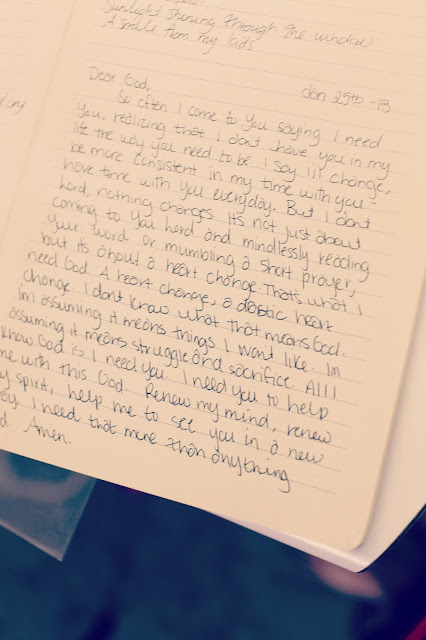 Sunlight shining through the window
A smile from my kids
Jan. 25th - 13
Dear God,
So often I come to you saying I need
you, realizing that I dont have you in my
life the way you need to be. I say I'll change,
be more consistent in my time with you
have time with you everyday. But I dont
hard, nothing changes. Its not just about
coming to you hard and mindlessly reading
your word or mumbling a short prayer,
but its about a heart change. Thats what I
need God. A heart change, a drastic heart
change. I dont know what that means God.
Im assuming it means things I wont like. Im
assuming it means struggle and sacrifice. All I
know God is I need you. I need you to help
me with this God. Renew my mind, renew
my spirit, help me to see you in a new
way. I need that more than anything
Amen.